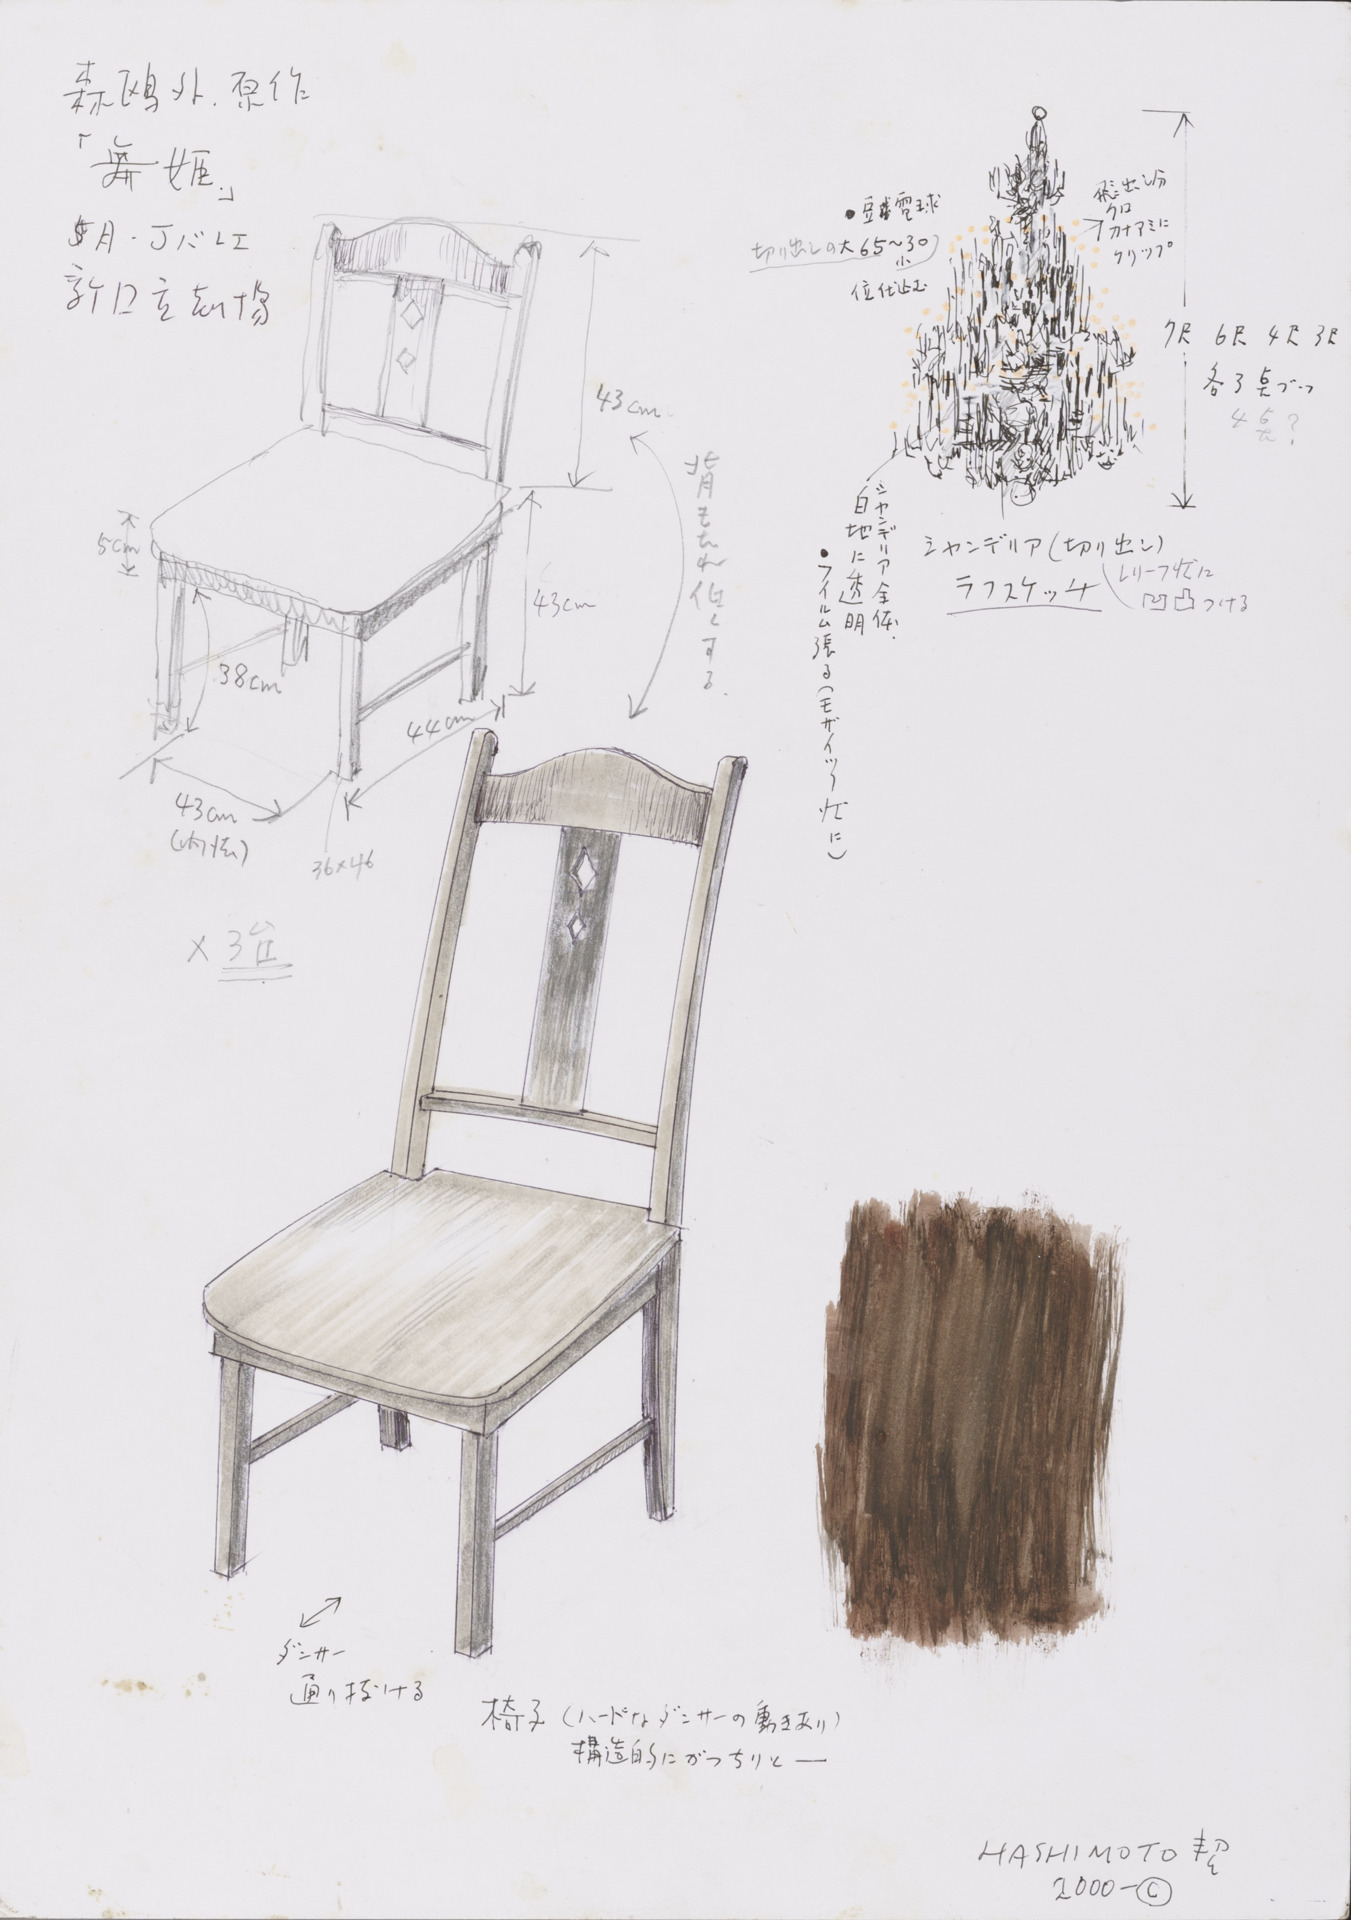 森鴎外.原作
「舞姫」
5月・Jバレエ
新国立劇場
43cm
背もたれ低くする.
5cm
43cm
38cm
44cm
43cm
(内法)
36×46
×3台
・豆電球
切り出しの大65〜30
小
位仕込む
飛出し分
クロ
カナアミに
クリップ
7尺 6尺 4尺 3尺
各3点づつ
4点?
シャンデリア(切り出し)
ラフスケッチ
レリーフ状に
凹凸つける
シャンデリア全体.
白地に透明
・フイルム張る(モザイック状に)
ダンサー
通り抜ける
椅子(ハードなダンサーの動きあり)
構造的にがっちりと—
HASHIMOTO 契
2000-©